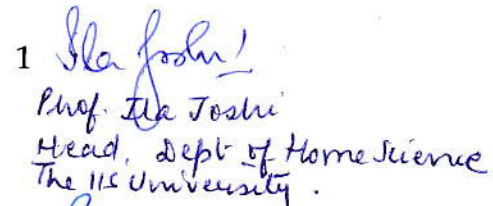 1 Ila Joshi
Prof. Ila Joshi
Head, Dept of Home Science
The IIS University.